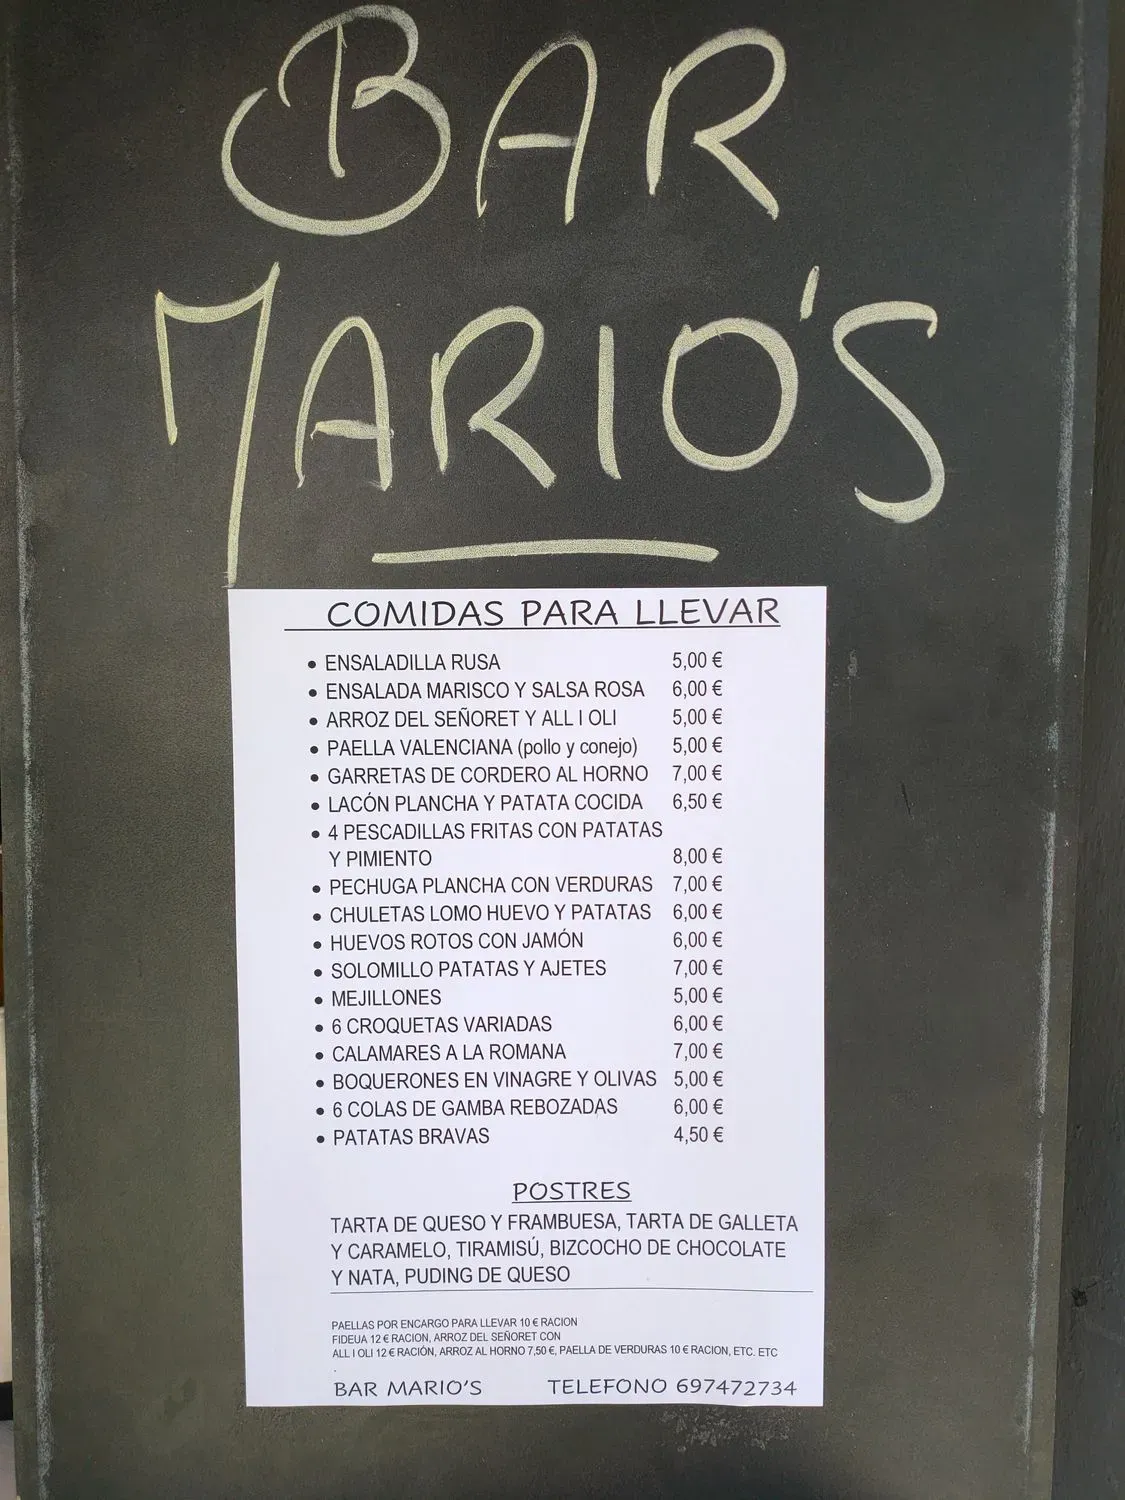 BAR
MARIO'S
COMIDAS PARA LLEVAR
• ENSALADILLA RUSA 5,00 €
• ENSALADA MARISCO Y SALSA ROSA 6,00 €
• ARROZ DEL SEÑORET Y ALL I OLI 5,00 €
• PAELLA VALENCIANA (pollo y conejo) 5,00 €
• GARRETAS DE CORDERO AL HORNO 7,00 €
• LACÓN PLANCHA Y PATATA COCIDA 6,50 €
• 4 PESCADILLAS FRITAS CON PATATAS
Y PIMIENTO 8,00 €
• PECHUGA PLANCHA CON VERDURAS 7,00 €
• CHULETAS LOMO HUEVO Y PATATAS 6,00 €
• HUEVOS ROTOS CON JAMÓN 6,00 €
• SOLOMILLO PATATAS Y AJETES 7,00 €
• MEJILLONES 5,00 €
• 6 CROQUETAS VARIADAS 6,00 €
• CALAMARES A LA ROMANA 7,00 €
• BOQUERONES EN VINAGRE Y OLIVAS 5,00 €
• 6 COLAS DE GAMBA REBOZADAS 6,00 €
• PATATAS BRAVAS 4,50 €
POSTRES
TARTA DE QUESO Y FRAMBUESA, TARTA DE GALLETA
Y CARAMELO, TIRAMISÚ, BIZCOCHO DE CHOCOLATE
Y NATA, PUDING DE QUESO
PAELLAS POR ENCARGO PARA LLEVAR 10 € RACION
FIDEUA 12 € RACION, ARROZ DEL SEÑORET CON
ALL I OLI 12 € RACIÓN, ARROZ AL HORNO 7,50 €, PAELLA DE VERDURAS 10 € RACION, ETC. ETC
.
BAR MARIO'S TELEFONO 697472734